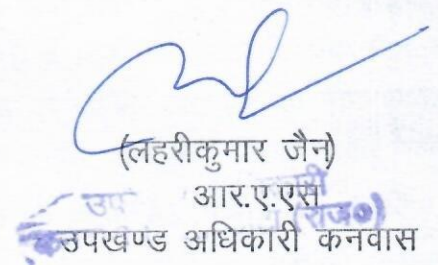 (लहरीकुमार जैन)
आर.ए.एस
उपखण्ड अधिकारी कनवास
उप
(राज०)